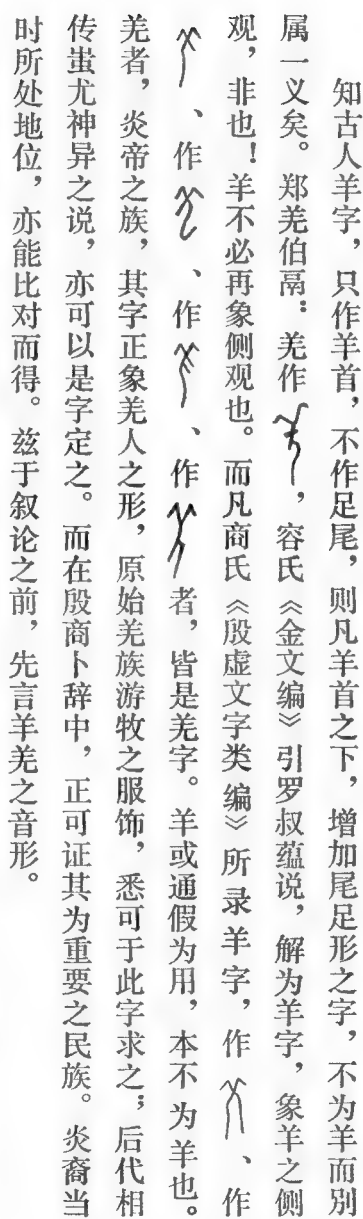 知古人羊字，只作羊首，不作足尾，则凡羊首之下，增加尾足形之字，不为羊而别
属一义矣。郑羌伯鬲：羌作，容氏《金文编》引罗叔蕴说，解为羊字，象羊之侧
观，非也！羊不必再象侧观也。而凡商氏《殷虚文字类编》所录羊字，作、作
、作、作、作者，皆是羌字。羊或通假为用，本不为羊也。
羌者，炎帝之族，其字正象羌人之形，原始羌族游牧之服饰，悉可于此字求之；后代相
传蚩尤神异之说，亦可以是字定之。而在殷商卜辞中，正可证其为重要之民族。炎裔当
时所处地位，亦能比对而得。兹于叙论之前，先言羊羌之音形。